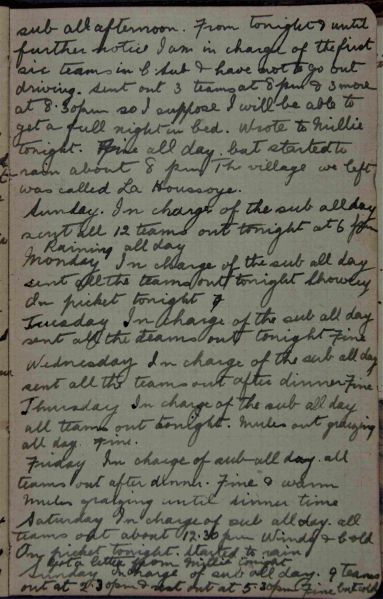 sub all afternoon. From tonight & until
further notice I am in charge of the first
six teams in C. Sub & have not to go out
driving. sent out 3 teams at 8 pm & 3 more
at 8.30 pm so I suppose I will be able to
get a full night in bed. Wrote to Millie
tonight. Fine all day. but started to
rain about 8 pm The village we left
was called La Houssoye.
Sunday. In charge of the sub all day
sent all 12 teams out tonight at 6 pm
Raining all day
Monday In charge of the sub all day
sent all the teams out tonight Showery
On picket tonight
Tuesday In charge of the sub all day
sent all the teams out tonight Fine
Wednesday In charge of the sub all day
sent all the teams out after dinner Fine.
Thursday In charge of the sub all day
all teams out tonight. Mules out grazing
all day. Fine.
Friday In charge of sub all day. all
teams out after dinner. Fine & warm
Mules grazing until dinner time
Saturday In charge of sub all day. all
teams out about 12.30 pm Windy & cold
On picket tonight. Started to rain
Got a letter from Millie tonight
Sunday In charge of sub all day. 9 teams
out at 2.30 pm & out at 5.30 pm Fine but cold